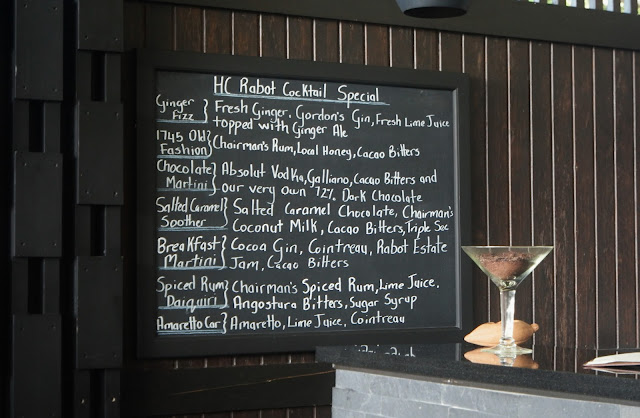 HC Rabot Cocktail Special
Ginger Fizz } Fresh Ginger, Gordon's Gin, Fresh Lime Juice
topped with Ginger Ale
1745 Old Fashion } Chairman's Rum, Local Honey, Cacao Bitters
Chocolate Martini } Absolut Vodka, Galliano, Cacao Bitters and
our very own 72% Dark Chocolate
Salted Caramel Soother } Salted Caramel Chocolate, Chairman's
Coconut Milk, Cacao Bitters, Triple Sec
Breakfast Martini } Cocoa Gin, Cointreau, Rabot Estate
Jam, Cacao Bitters
Spiced Rum Daiquiri } Chairman's Spiced Rum, Lime Juice.
Angostura Bitters, Sugar Syrup
Amaretto Car } Amaretto, Lime Juice, Cointreau